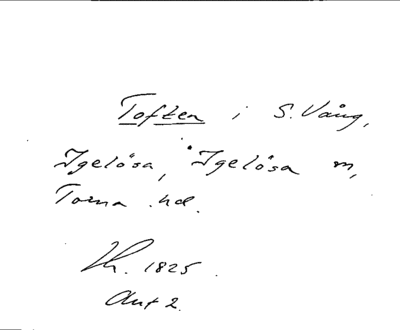 Toften i S. Vång,
Igelösa, Igelösa
Torna hd.
1825.
Akt 2.